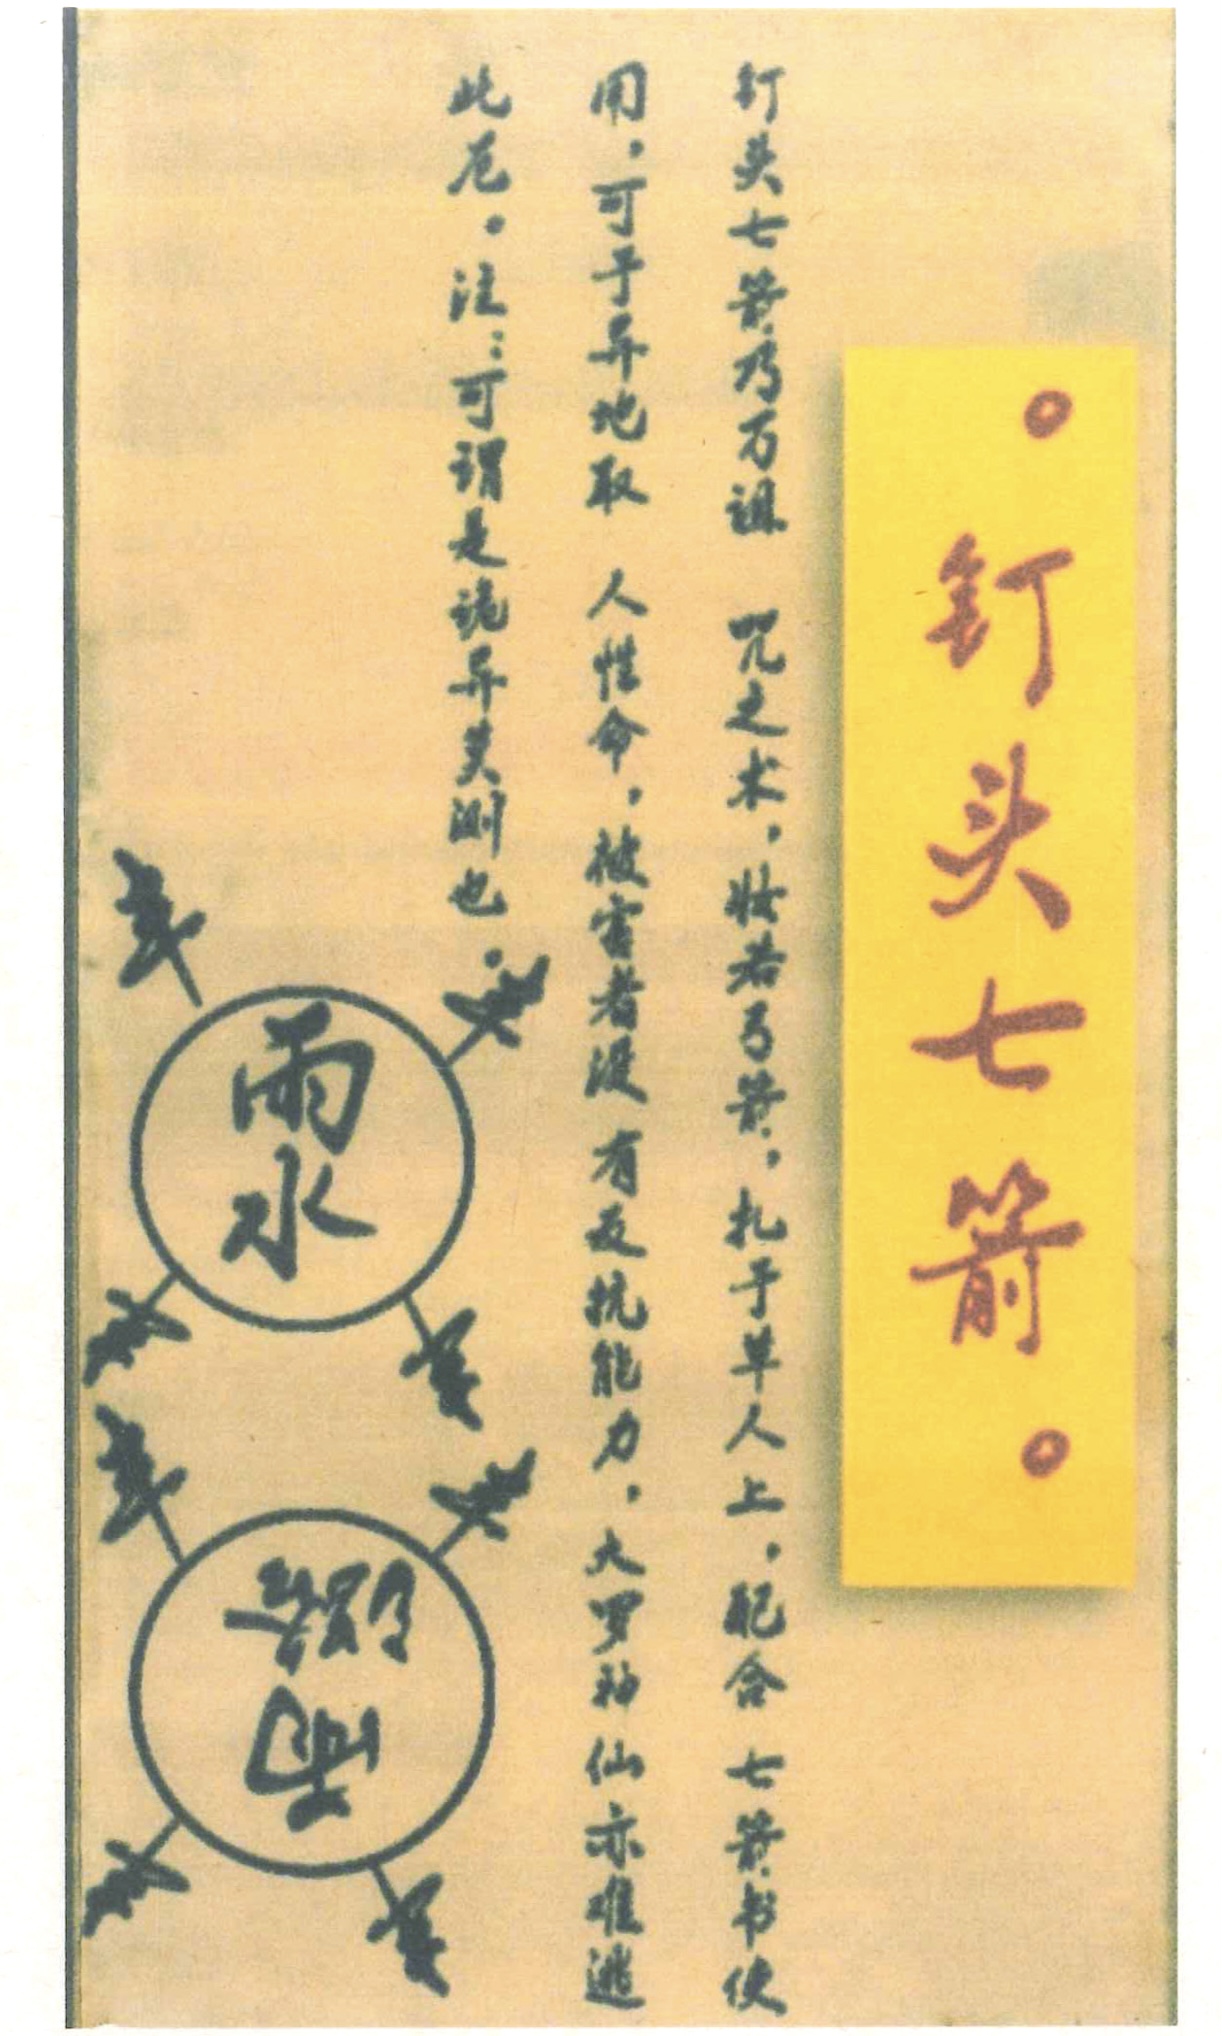 。钉头七箭。
钉头七箭乃万诅 咒之术，妆若弓箭，扎于草人上，配合 七箭书使
用，可于异地取 人性命，被害者没 有反抗能力，大罗神仙亦难逃
此厄。注：可谓是诡异莫测也。
雨水